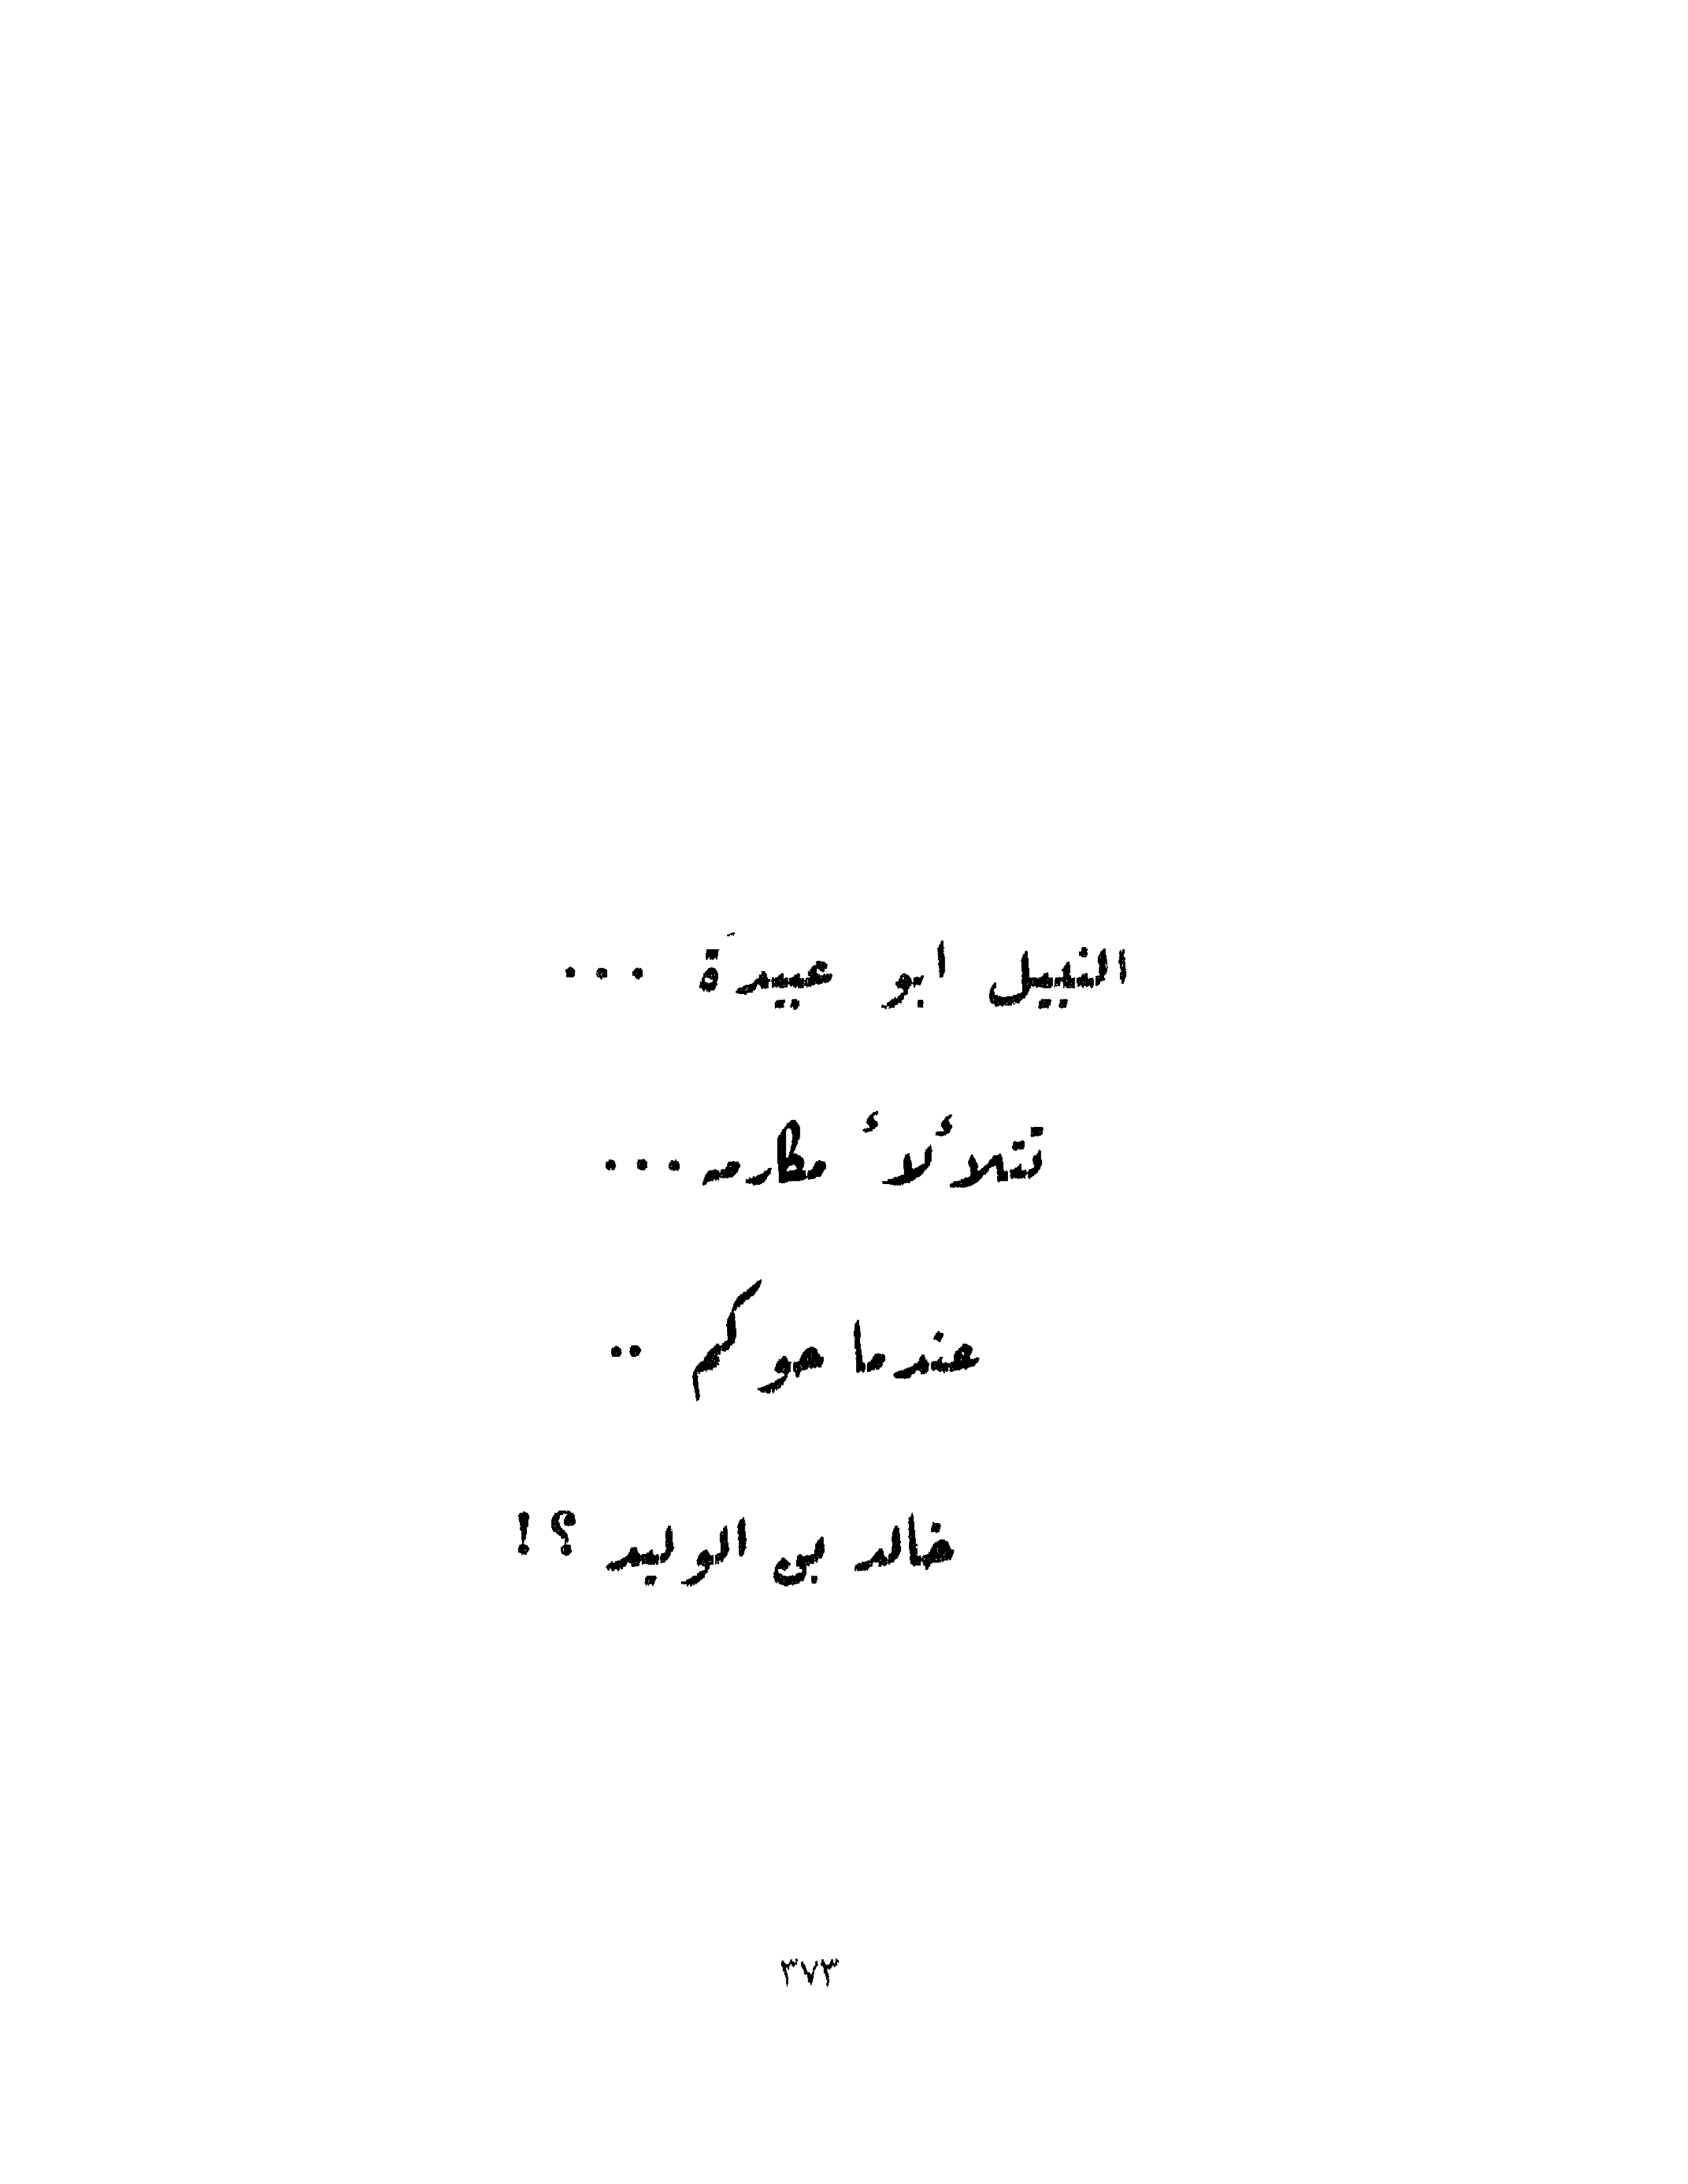 النبيل ابو عبيدة ...
تتلألأ مكارمه ...
عندما حوكم ..
خالد بن الوليد ؟!
٣٧٣